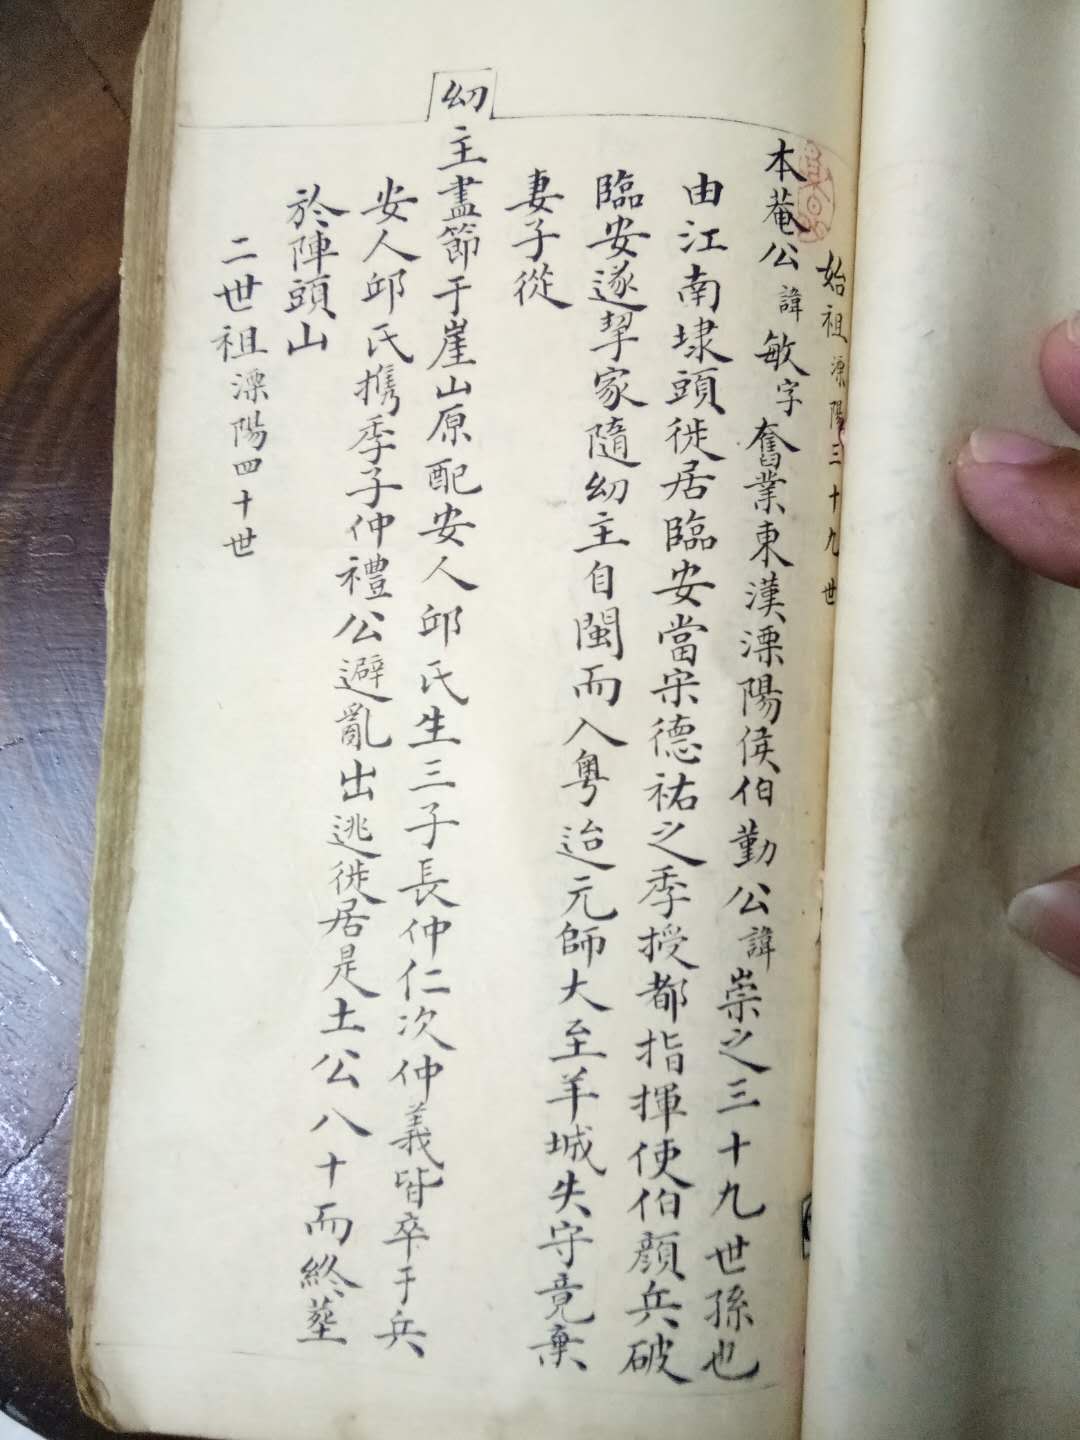 始祖溧陽三十九世
本菴公諱敏字奮業東漢溧陽侯伯勤公諱崇之三十九世孫也
由江南埭頭徙居臨安當宋德祐之季授都指揮使伯顏兵破
臨安遂挈家隨幼主自閩而入粵迨元師大至羊城失守竟棄
妻子從
幼主盡節于崖山原配安人邱氏生三子長仲仁次仲義皆卒于兵
安人邱氏携季子仲禮公避亂出逃徙居是土公八十而終塟
於陣頭山
二世祖溧陽四十世